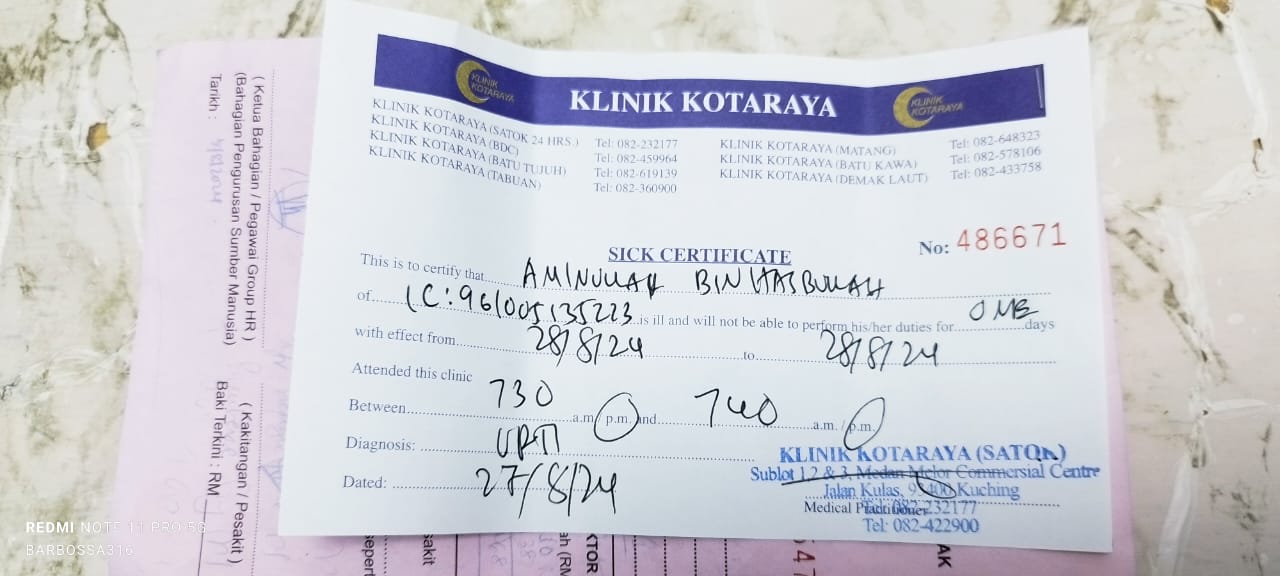 KLINIK KOTARAYA
KLINIK KOTARAYA
KLINIK KOTARAYA
KLINIK KOTARAYA (SATOK 24 HRS.) Tel: 082-232177
KLINIK KOTARAYA (BDC) Tel: 082-459964
KLINIK KOTARAYA (BATU TUJUH) Tel: 082-619139
KLINIK KOTARAYA (TABUAN) Tel: 082-360900
KLINIK KOTARAYA (MATANG) Tel: 082-648323
KLINIK KOTARAYA (BATU KAWA) Tel: 082-578106
KLINIK KOTARAYA (DEMAK LAUT) Tel: 082-433758
No: 486671
SICK CERTIFICATE
This is to certify that AMINULLAH BIN HASBULLAH
of IC: 961005135223 is ill and will not be able to perform his/her duties for ONE days
with effect from 28/8/24 to 28/8/24
Attended this clinic
Between 730 a.m p.m. and 740 a.m. / p.m.
Diagnosis: URTI
Dated: 27/8/24
KLINIK KOTARAYA (SATOK)
Sublot 1,2 & 3, Medan Melor Commersial Centre
Jalan Kulas, 93400 Kuching
Medical Practitioner
Tel: 082-232177
Tel: 082-422900
( Ketua Bahagian / Pegawai Group HR )
(Bahagian Pengurusan Sumber Manusia)
Tarikh :
( Kakitangan / Pesakit )
Baki Terkini : RM
REDMI NOTE 11 PRO 5G
BARBOSSA316